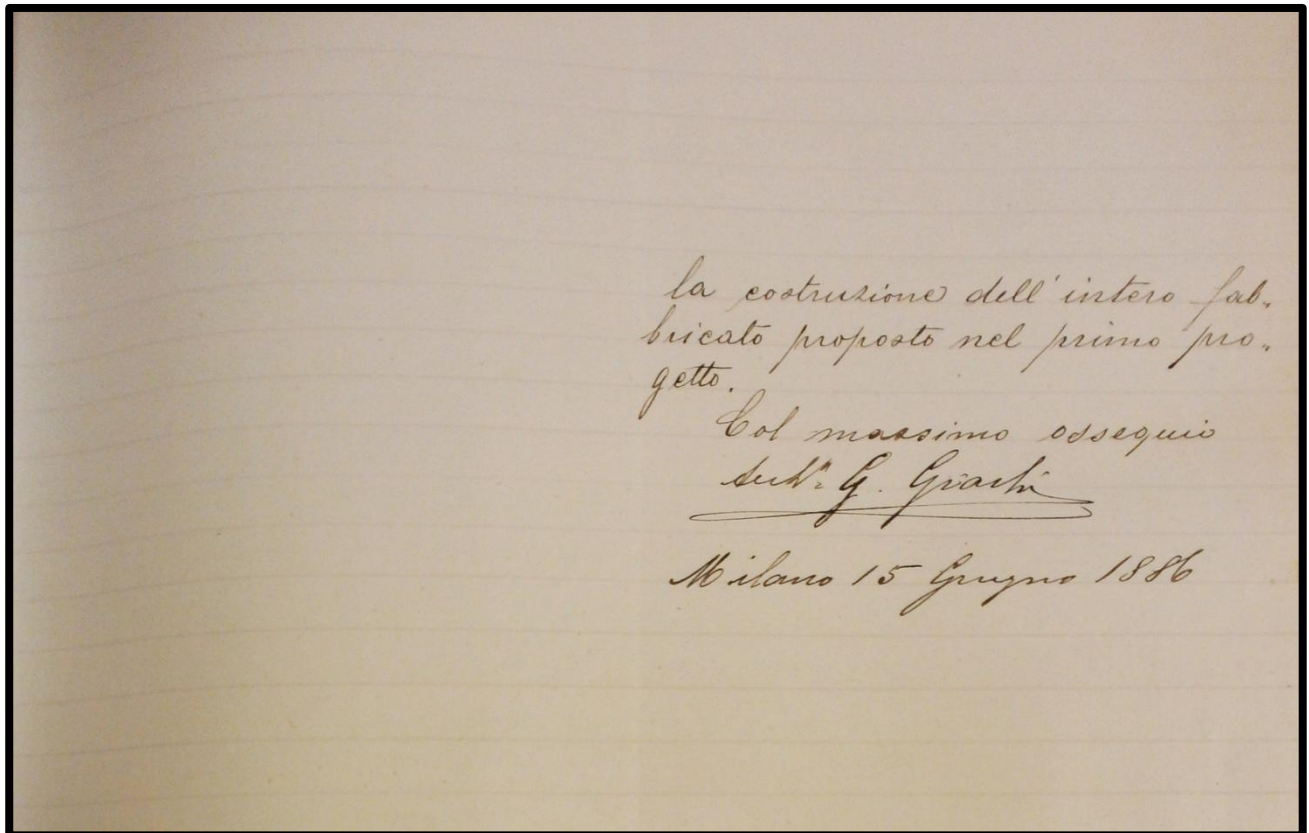 la costruzione dell'intero fab„
bricato proposto nel primo pro„
getto.
Col massimo ossequio
Archº G. Giachi
Milano 15 Giugno 1886